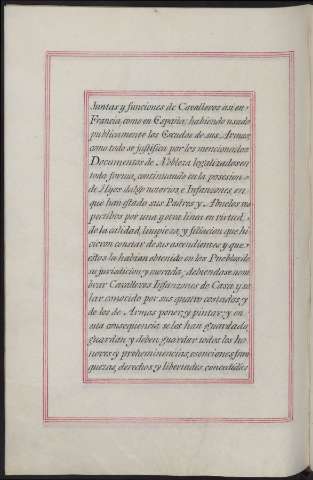 Juntas y funciones de Cavalleros asi en
Francia, como en España; habiendo usado
publicamente los Escudos de sus Armas,
como todo se justifica por los mencionados
Documentos de Nobleza legalizados en
toda forma, continuando en la posesion
de Hijos dalgo notorios, e Infanzones, en
que han estado sus Padres y Abuelos
por una y otra linea en virtud
de la calidad, limpieza, y filiacion que hi-
cieron constar de sus ascendientes, y que
estos lo habian obtenido en los Pueblos de
su jurisdicion y morada; debiendose nom
brar Cavalleros Infanzones de Casa y so
lar conocido por sus quatro costados, y
de los de Armas poner, y pintar, y en
su consequencia se les han guardado,
guardan, y deben guardar todos los ho
nores, y preheminencias, esenciones, fran
quezas, derechos, y libertades, concedidos